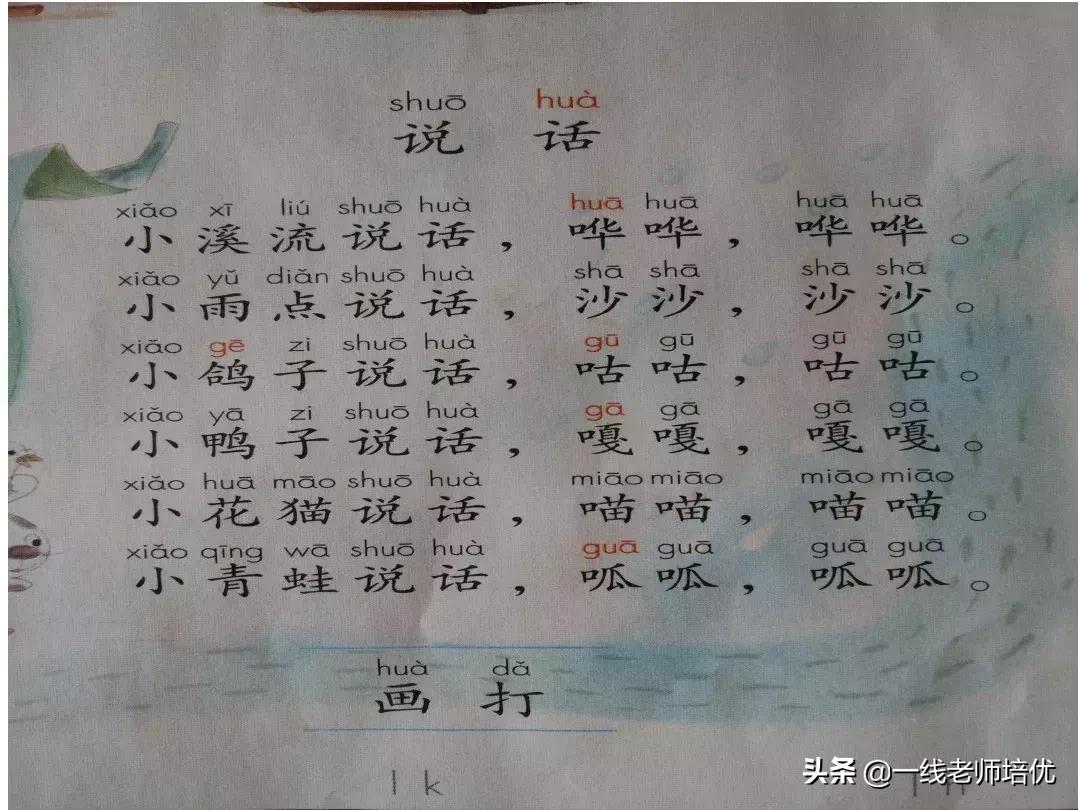 shuō huà
说 话
xiǎo xī liú shuō huà huā huā huā huā
小 溪 流 说 话 ， 哗 哗 ， 哗 哗 。
xiǎo yǔ diǎn shuō huà shā shā shā shā
小 雨 点 说 话 ， 沙 沙 ， 沙 沙 。
xiǎo gē zi shuō huà gū gū gū gū
小 鸽 子 说 话 ， 咕 咕 ， 咕 咕 。
xiǎo yā zi shuō huà gā gā gā gā
小 鸭 子 说 话 ， 嘎 嘎 ， 嘎 嘎 。
xiǎo huā māo shuō huà miāo miāo miāo miāo
小 花 猫 说 话 ， 喵 喵 ， 喵 喵 。
xiǎo qīng wā shuō huà guā guā guā guā
小 青 蛙 说 话 ， 呱 呱 ， 呱 呱 。
huà dǎ
画 打
l k
头条 @一线老师培优